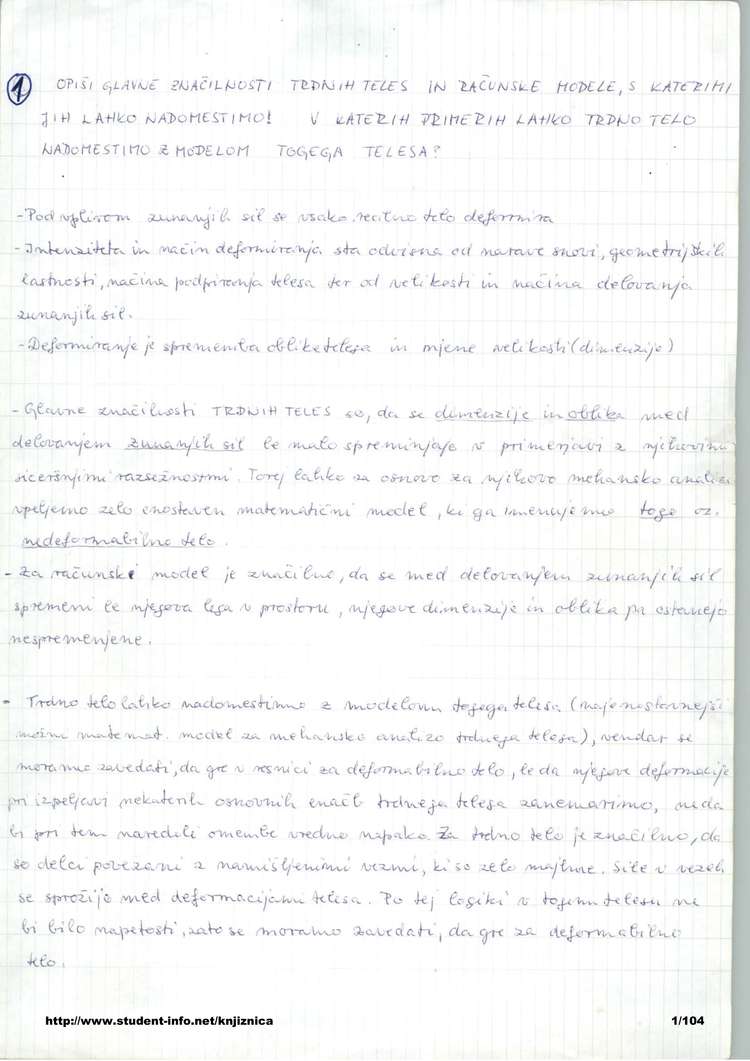 1 OPIŠI GLAVNE ZNAČILNOSTI TRDNIH TELES IN RAČUNSKE MODELE, S KATERIMI
JIH LAHKO NADOMESTIMO! V KATERIH PRIMERIH LAHKO TRDNO TELO
NADOMESTIMO Z MODELOM TOGEGA TELESA?
- Pod vplivom zunanjih sil se vsako realno telo deformira
- Intenziteta in način deformiranja sta odvisna od narave snovi, geometrijskih
lastnosti, načina podpiranja telesa ter od velikosti in načina delovanja
zunanjih sil.
- Deformiranje je sprememba oblike telesa in njene velikosti (dimenzije)
- Glavne značilnosti TRDNIH TELES so, da se dimenzije in oblika med
delovanjem zunanjih sil le malo spreminjajo v primerjavi z njihovimi
siceršnjimi razsežnostmi. Torej lahko za osnovo za njihovo mehansko analizo
vpeljemo zelo enostaven matematični model, ki ga imenujemo togo oz.
nedeformabilno telo.
- Za računski model je značilno, da se med delovanjem zunanjih sil
spremeni le njegova lega v prostoru, njegove dimenzije in oblika pa ostanejo
nespremenjene.
- Trdno telo lahko nadomestimo z modelom togega telesa (najenostavnejši
možni matemat. model za mehansko analizo trdnega telesa), vendar se
moramo zavedati, da gre v resnici za deformabilno telo, le da njegove deformacije
pri izpeljavi nekaterih osnovnih enačb trdnega telesa zanemarimo, ne da
bi pri tem naredili omembe vredno napako. Za trdno telo je značilno, da
so delci povezani z namišljenimi vezmi, ki so zelo majhne. Sile v vezeh
se sprožijo med deformacijami telesa. Po tej logiki v togemu telesu ne
bi bilo napetosti, zato se moramo zavedati, da gre za deformabilno
telo.
http://www.student-info.net/knjiznica 1/104